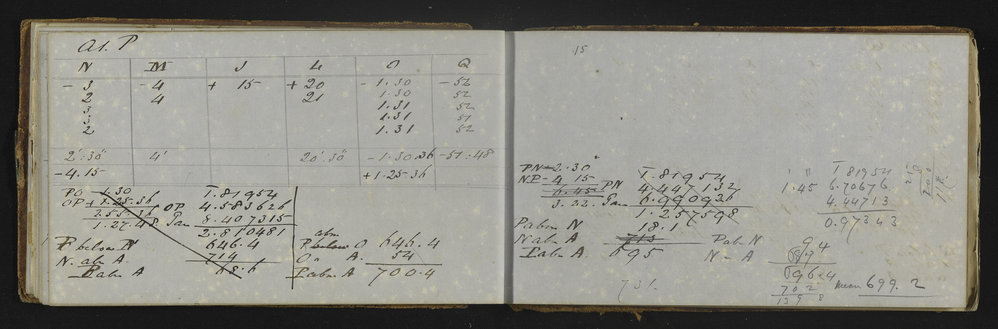 At. P
N M J L O Q
- 3 - 4 + 15 + 20 - 1.30 - 52
2 4 21 1.30 52
3 1.31 52
3 1.31 51
2 1.31 52
2'.30" 4' 20'.30" - 1.30.36 - 51.48
- 4.15 + 1.25.36
PO - 1.30 1.81954
OP + 1.25.36 OP 4.583626
2.55.36 8.407315
1.27.48 Tan 2.810481
P below N 646.4
N. abv A 714
P abv A 68.6
abv
P below O 646.4
O " A. 54
P abv A 700.4
15
PN - 2.30"
NP - 4.15 1.81954
6.45 PN 4.447132
3.22. Tan 6.990936
1.257598
P abv N 18.1
N abv A 713
P abv A. 695
731.
1.81954
1.45 6.70676
4.44713
0.97343
P ab N 9.4
N - A
696.4
702
139 8
mean 699.2